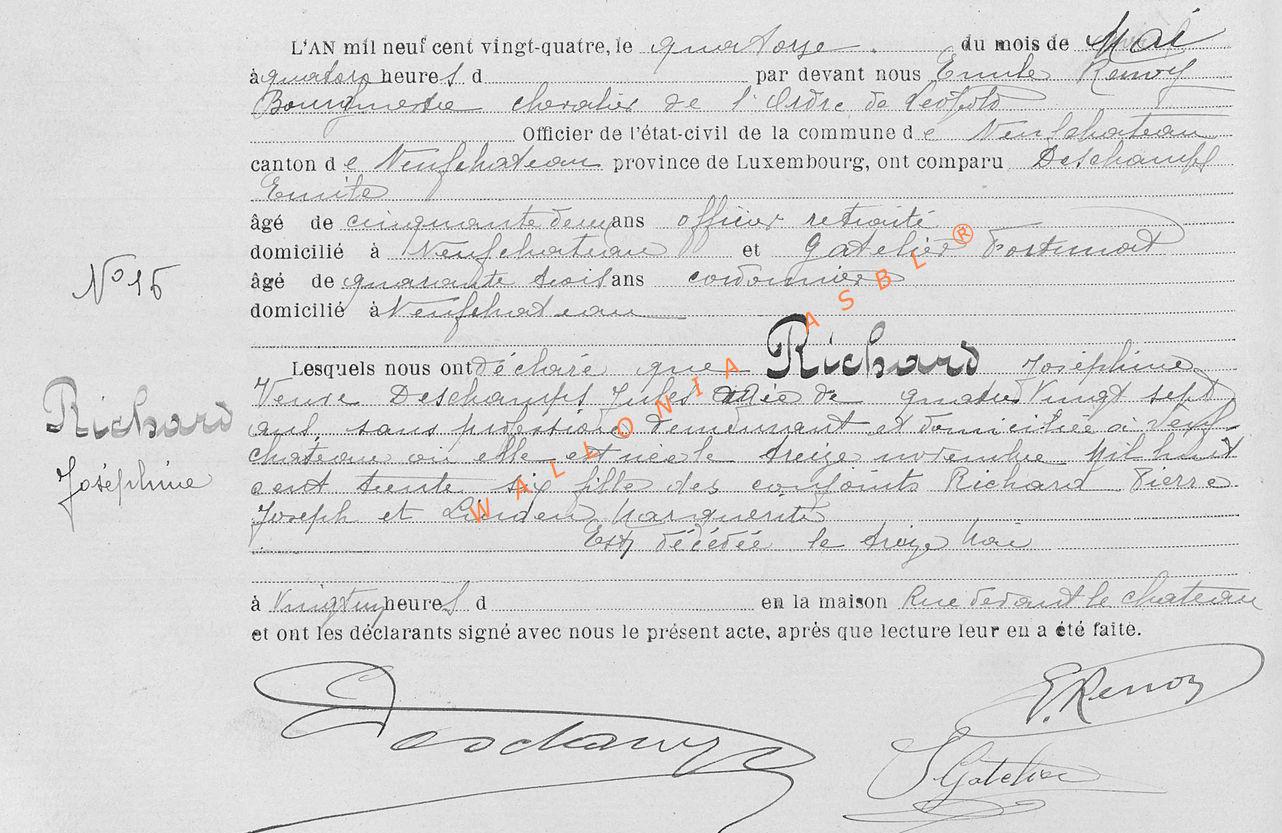 L'AN mil neuf cent vingt-quatre, le quatorze du mois de Mai
à quatorze heures d par devant nous Emile Renoy
Bourgmestre chevalier de l'Ordre de Léopold
Officier de l'état-civil de la commune de Neufchateau
canton de Neufchateau province de Luxembourg, ont comparu Deschamps
Emile
âgé de cinquante deux ans officier retraité
domicilié à Neufchateau et Gatelier
N° 15
âgé de quarante trois ans cordonnier
domicilié à Neufchateau
Lesquels nous ont déclaré que Richard Joséphine
Richard
Joséphine
Veuve Deschamps Jules agée de quatre Vingt sept
ans, sans profession demeurant et domiciliée à Neuf-
chateau où elle est née le treize novembre Mil huit
cent trente six fille des conjoints Richard Pierre
Joseph et Linden Marguerite
Est décédée le treize Mai
à Vingt heures d en la maison Rue devant le chateau
et ont les déclarants signé avec nous le présent acte, après que lecture leur en a été faite.
E. Renoy
Deschamps
Gatelier
WALLONIA ASBL ®